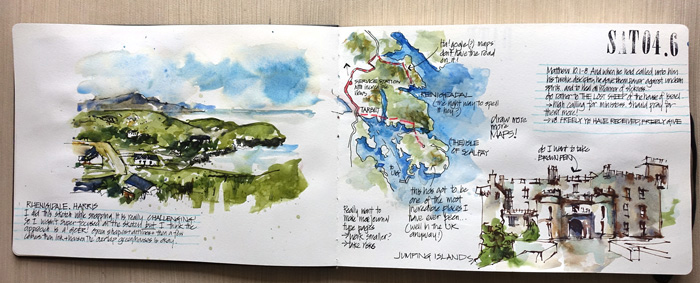 RHENIGIDALE, HARRIS
I did this sketch while snapping, it is really CHALLENGING
So I wasn't super focused at the sketch but I think the
approach is a goer.
canvas then ink + hooray the overlap green/houses is okay.
Ha! google(?) maps
don't have the road
on it!
SERVICE STATION
with incredible
views
TARBERT
RHENIGIDALE
(the right way to spell
it tiny)
THE ISLE
OF SCALPAY
draw more
more
MAPS!
Really want to
make mad journal
type pages
→ work smaller?
→ take risks
this has got to be
one of the most
incredible places I
have ever been...
(well in the UK
anyway!)
JUMPING ISLANDS
SAT 04.6
Matthew 10.1-8 And when he had called unto him
his twelve disciples, he gave them power against unclean
spirits, and to heal all manner of sickness.
Go rather to THE LOST SHEEP of the house of Israel
→ high calling for ministers. Should pray for
them more!
→ v8 FREELY YE HAVE RECEIVED, FREELY GIVE
do I want to take
BROWN PEN